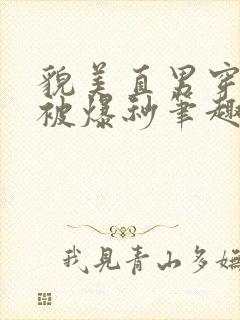 貌美直男穿
被爆秒笔趣
我见青山多妩